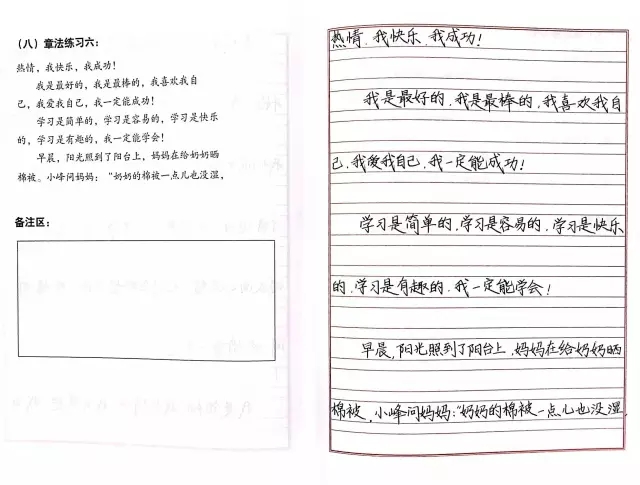 （八）章法练习六：
热情，我快乐，我成功！
我是最好的，我是最棒的，我喜欢我自
己，我爱我自己，我一定能成功！
学习是简单的，学习是容易的，学习是快乐
的，学习是有趣的，我一定能学会！
早晨，阳光照到了阳台上，妈妈在给奶奶晒
棉被。小峰问妈妈：“奶奶的棉被一点儿也没湿，
备注区：
热情，我快乐，我成功！
我是最好的，我是最棒的，我喜欢我自
己，我愛我自己，我一定能成功！
学习是简单的，学习是容易的，学习是快乐
的，学习是有趣的，我一定能学会！
早晨，阳光照到了阳台上，妈妈在给奶奶晒
棉被，小峰问妈妈：“奶奶的棉被一点儿也没湿，